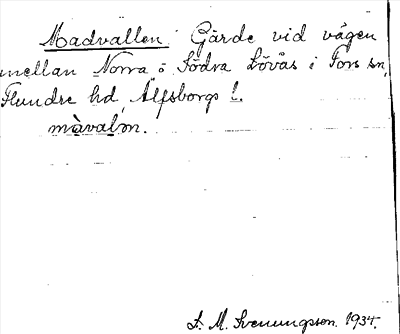 Madvallen Gärde vid vägen
mellan Norra o Södra Lövås i Fors sn,
Flundre hd, Älfsborgs l.
màvalən.
S. M. Svenungsson. 1934.